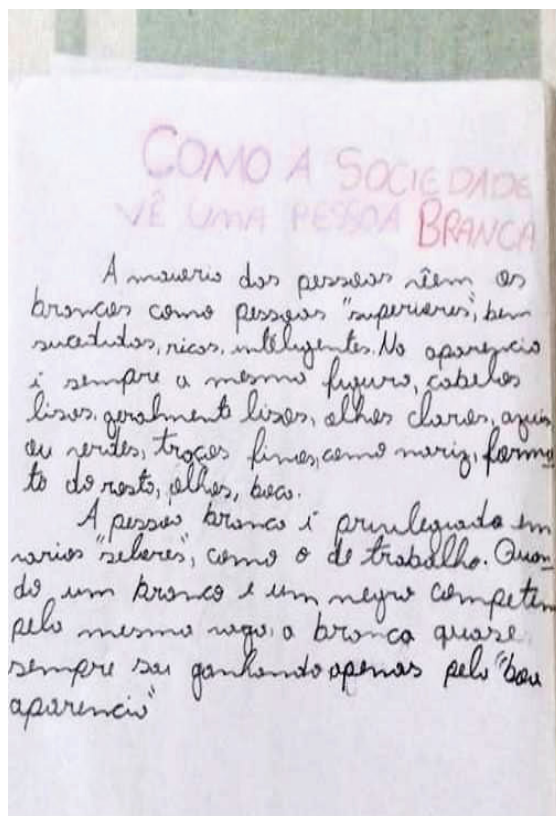 COMO A SOCIEDADE
VÊ UMA PESSOA BRANCA
A maioria das pessoas vêem os
brancos como pessoas "superiores", bem
sucedidas, ricas, inteligentes. Na aparencia
é sempre a mesma figura, cabelos
lisos, geralmente lisos, olhos claros, azuis
ou verdes, traços finos, como nariz, forma
to do rosto, olhos, boca.
A pessoa branca é privilegiada em
varios "setores", como o de trabalho. Quan
do um branco e um negro competem
pela mesma vaga, o branco quase
sempre sai ganhando apenas pela "boa
aparencia"